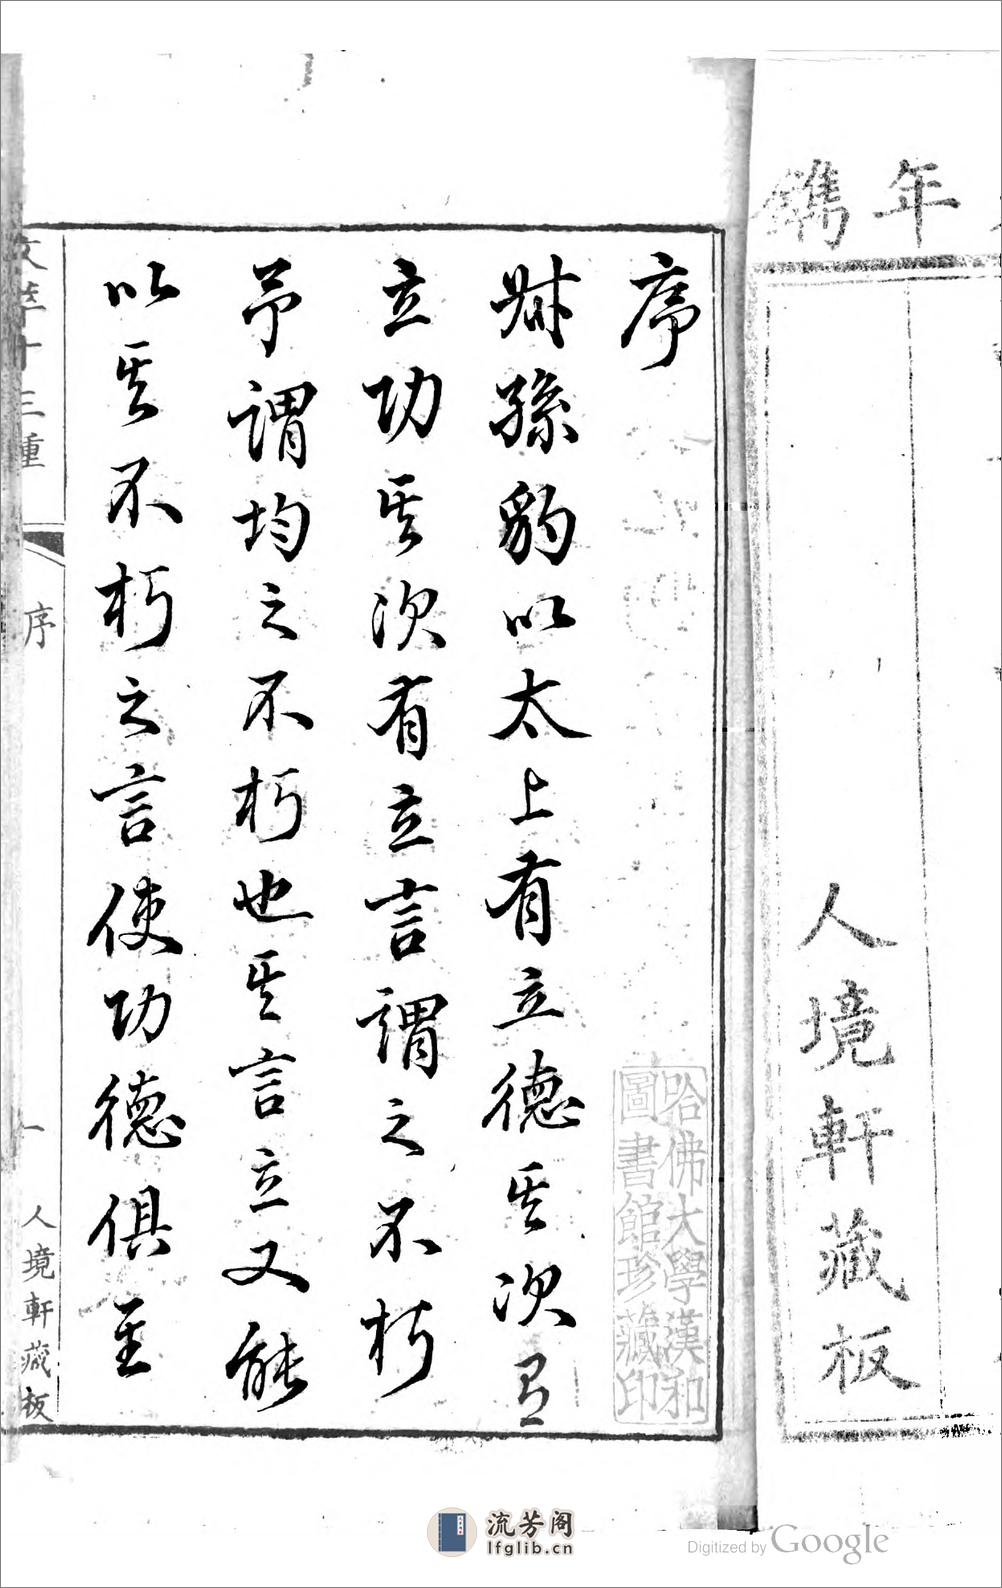 年
鐫
人境軒藏板
序
叔孫豹以太上有立德其次有
立功其次有立言謂之不朽
予謂均之不朽也其言立又能
以其不朽之言使功德俱至
哈佛大學漢和
圖書館珍藏印
十三種
序
一
人境軒藏板
流芳阁
lfglib.cn
Digitized by Google